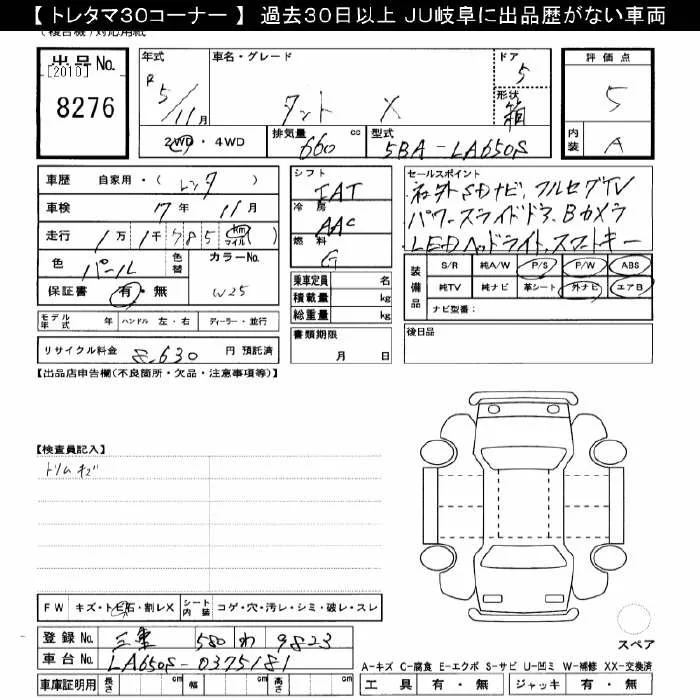 【 トレタマ30コーナー 】 過去30日以上 JU岐阜に出品歴がない車両
(複合機)対応用紙
出品No.
[2010]
8276
年式
R5/11月
車名・グレード
タント X
ドア
5
形状
箱
評価点
5
内装
A
2WD・4WD
排気量
660 cc
型式
5BA-LA650S
車歴 自家用・( レンタ )
車検 7年 11月
走行 1万 1千785 km マイル ( )
色 パール
色替
カラーNo.
W25
保証書 有・無
モデル年式 年 ハンドル 左・右 ディーラー・並行
リサイクル料金 8,630 円 預託済
シフト
FAT
冷房
AAC
燃料
G
乗車定員 名
積載量 kg
総重量 kg
書類期限
月 日
セールスポイント
社外SDナビ、フルセグTV
パワースライドドア、Bカメラ
LEDヘッドライト、スマートキー
装備品
S/R 純A/W P/S P/W ABS
純TV 純ナビ 革シート 外ナビ エアB
ナビ型番：
後日品
【出品店申告欄(不良箇所・欠品・注意事項等)】
【検査員記入】
トリムキズ
FW キズ・トビ石・割レX シート内装 コゲ・穴・汚レ・シミ・破レ・スレ
登録No. 三重 580 わ 9823
車台No. LA650S-0375181
車庫証明用 長さ cm 幅 cm 高さ cm
スペア
A-キズ C-腐食 E-エクボ S-サビ U-凹ミ W-補修 XX-交換済
工具 有・無 ジャッキ 有・無